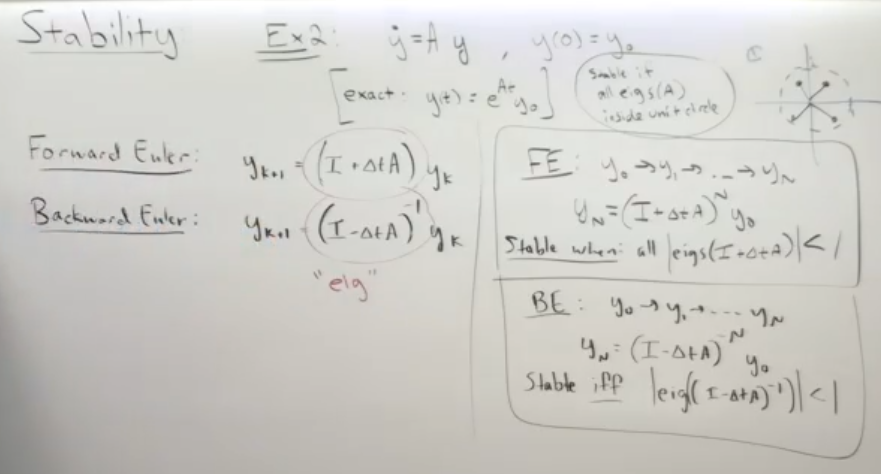 Stability
Ex2: ẏ = A y , y(0) = y₀
[exact: y(t) = e^{At} y₀]
Stable if
all eigs(A)
inside unit circle
Forward Euler: y_{k+1} = (I + ΔtA) y_k
Backward Euler: y_{k+1} = (I - ΔtA)^{-1} y_k
"eig"
FE: y₀ → y₁ → ... → y_N
y_N = (I + ΔtA)^N y₀
Stable when: all |eigs(I + ΔtA)| < 1
BE: y₀ → y₁ → ---- y_N
y_N = (I - ΔtA)^{-N} y₀
Stable iff |eig((I - ΔtA)^{-1})| < 1